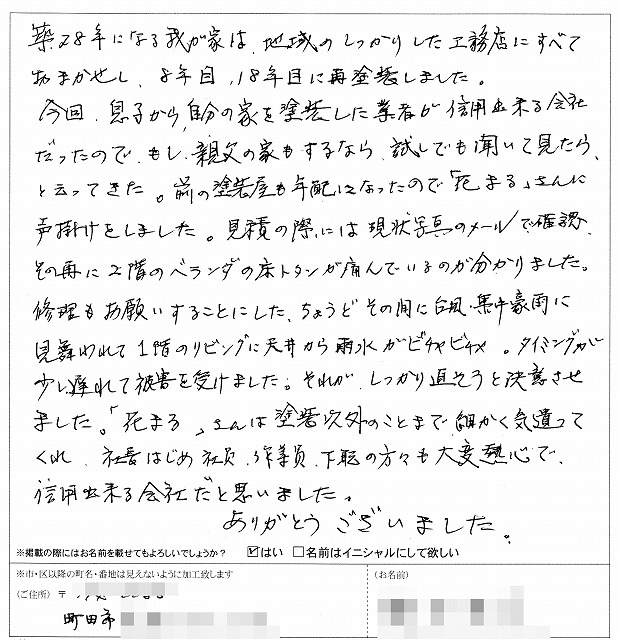 築28年になる我が家は、地域のしっかりした工務店にすべて
おまかせし、8年目、18年目に再塗装しました。
今回、息子から、自分の家を塗装した業者が信用出来る会社
だったので、もし、親父の家もするなら、試しでも聞いて見たら、
と云ってきた。前の塗装屋も年配になったので「花まる」さんに
声掛けをしました。見積の際には現状写真のメールで確認、
その再に2階のベランダの床トタンが痛んでいるのが分かりました。
修理もお願いすることにした、ちょうどその間に台風・集中豪雨に
見舞われて1階のリビングに天井から雨水がビチャビチャ。タイミングが
少し遅れて被害を受けました。それが、しっかり直そうと決意させ
ました。「花まる」さんは塗装以外のことまで細かく気遣って
くれ、社長はじめ社員、作業員、下職の方々も大変熱心で、
信用出来る会社だと思いました。
ありがとうございました。
※掲載の際にはお名前を載せてもよろしいでしょうか? ☑はい □名前はイニシャルにして欲しい
※市・区以降の町名・番地は見えないように加工致します
(ご住所) 〒
町田市
(お名前)